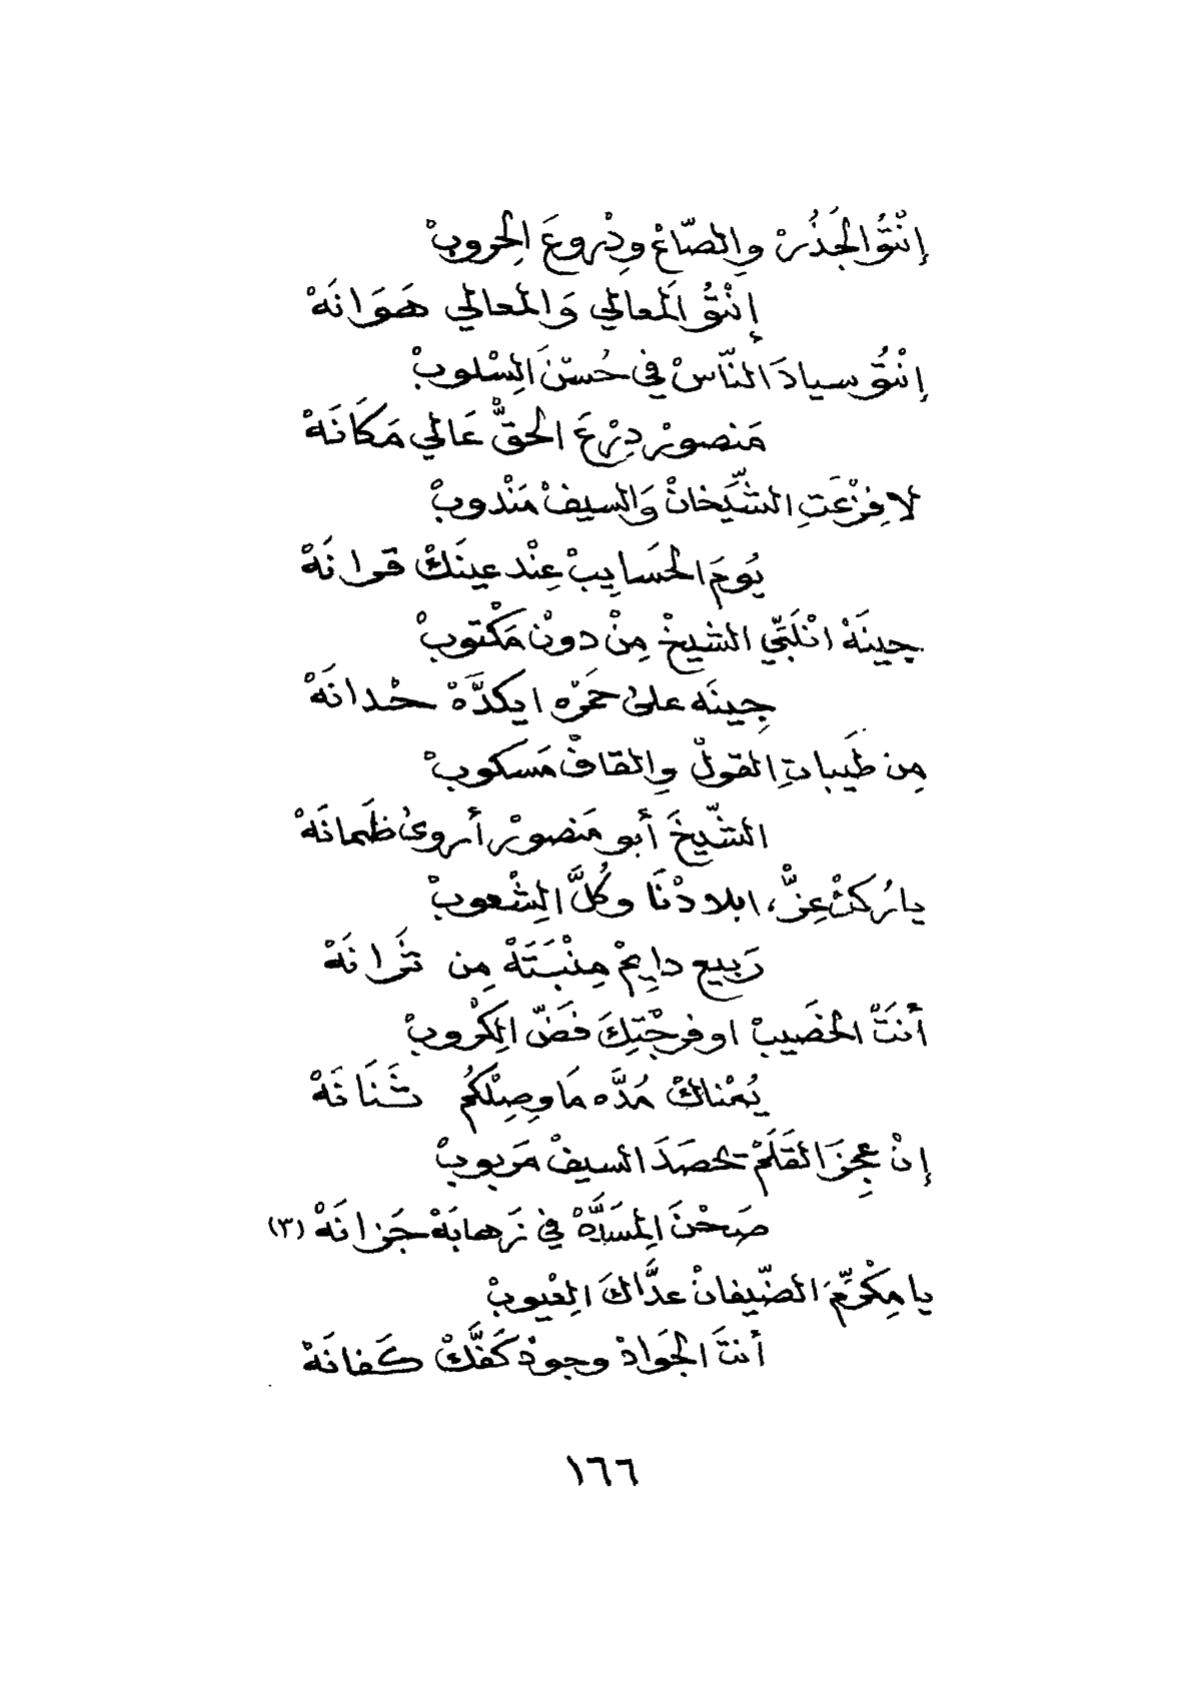 إنْتُو الجَذُرْ وِالصّاعْ ودْروعَ الِحروبْ
إنْتُو المَعالي وَالمعالي هَوَانَهْ
إنْتُو سيادَ النّاسْ في حُسْنَ السْلوبْ
مَنصورْ دِرْعَ الحقّْ عَالي مَكَانَهْ
لا فِزْعَتِ الشّيَخانْ وَالسيفْ مَنْدوبْ
يُومَ الحَسايِبْ عِنْد عينَكْ قرانَهْ
جِينَهْ انْلَبّي الشيخْ مِنْ دونْ مَكْتوبْ
جِينَه على حَمَرْه ايكدَّهْ حْدانَهْ
مِن طَيباتِ القولْ وِالقافْ مَسكوبْ
الشّيخَ أبو مَنصورْ أروىْ ظَمانَهْ
يا رُكنْ عِزّْ، ابلادْنَا وكُلَّ الِشْعوبْ
رَبيع دايِمْ مِنْبَتَهْ مِن ثَرانَهْ
أنتَ الخضَيبْ اوفرجْتِكَ فَضّ الِكْروبْ
يُمْناكْ مُدَّه مَا وصِلْكُم ثَنَانَهْ
إنْ عجِزَ القَلَمْ تحصَدَ السيفْ مَربوبْ
صَحْنَ المِسَدَّهْ في زَهابَهْ جَزانَهْ (٣)
يا مِكْرِمَ الضّيفانْ عدَّاكَ الِعْيوبْ
أنتَ الجَوَادْ وجودْ كَفَّكْ كَفانَهْ
١٦٦